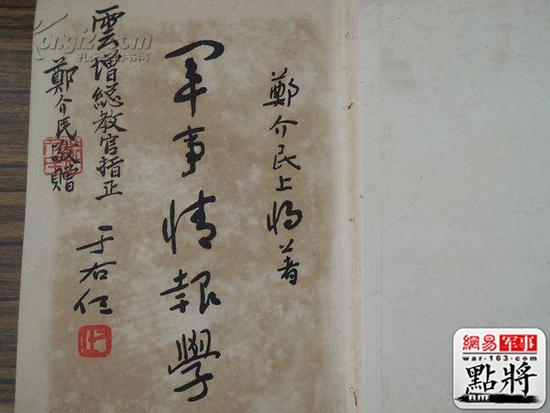 鄭介民上將著
軍事情報學
于右任
雲增總教官指正
鄭介民敬贈
Kongfz.com
網易軍事
war·163.com
點將